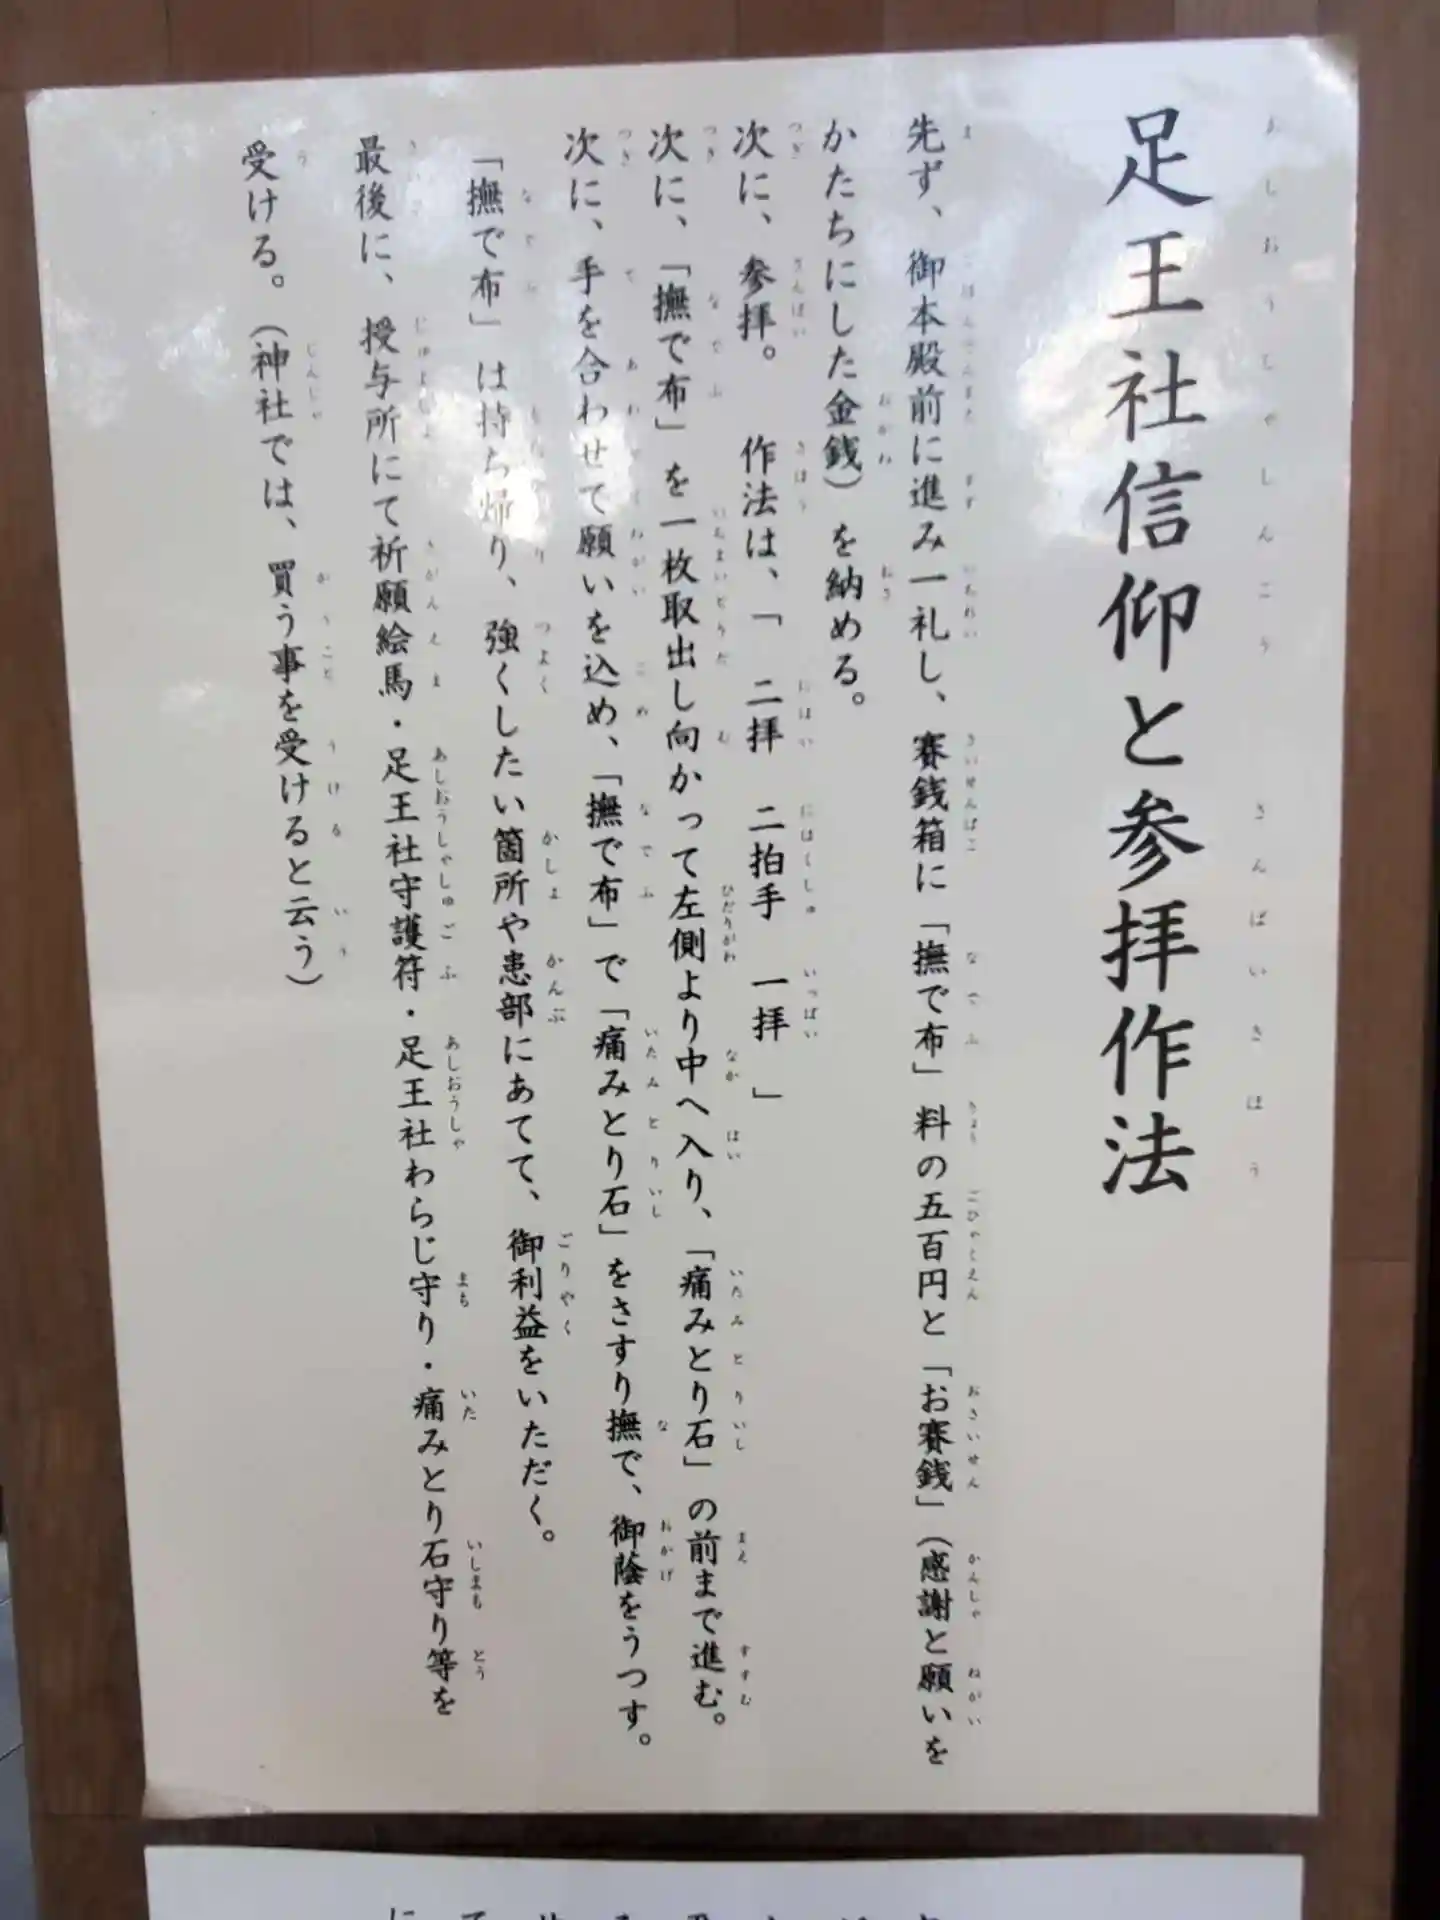 足王社信仰と参拝作法
先ず、御本殿前に進み一礼し、賽銭箱に「撫で布」料の五百円と「お賽銭」（感謝と願いを
かたちにした金銭）を納める。
次に、参拝。 作法は、「 二拝 二拍手 一拝 」
次に、「撫で布」を一枚取出し向かって左側より中へ入り、「痛みとり石」の前まで進む。
次に、手を合わせて願いを込め、「撫で布」で「痛みとり石」をさすり撫で、御蔭をうつす。
「撫で布」は持ち帰り、強くしたい箇所や患部にあてて、御利益をいただく。
最後に、授与所にて祈願絵馬・足王社守護符・足王社わらじ守り・痛みとり石守り等を
受ける。（神社では、買う事を受けると云う）